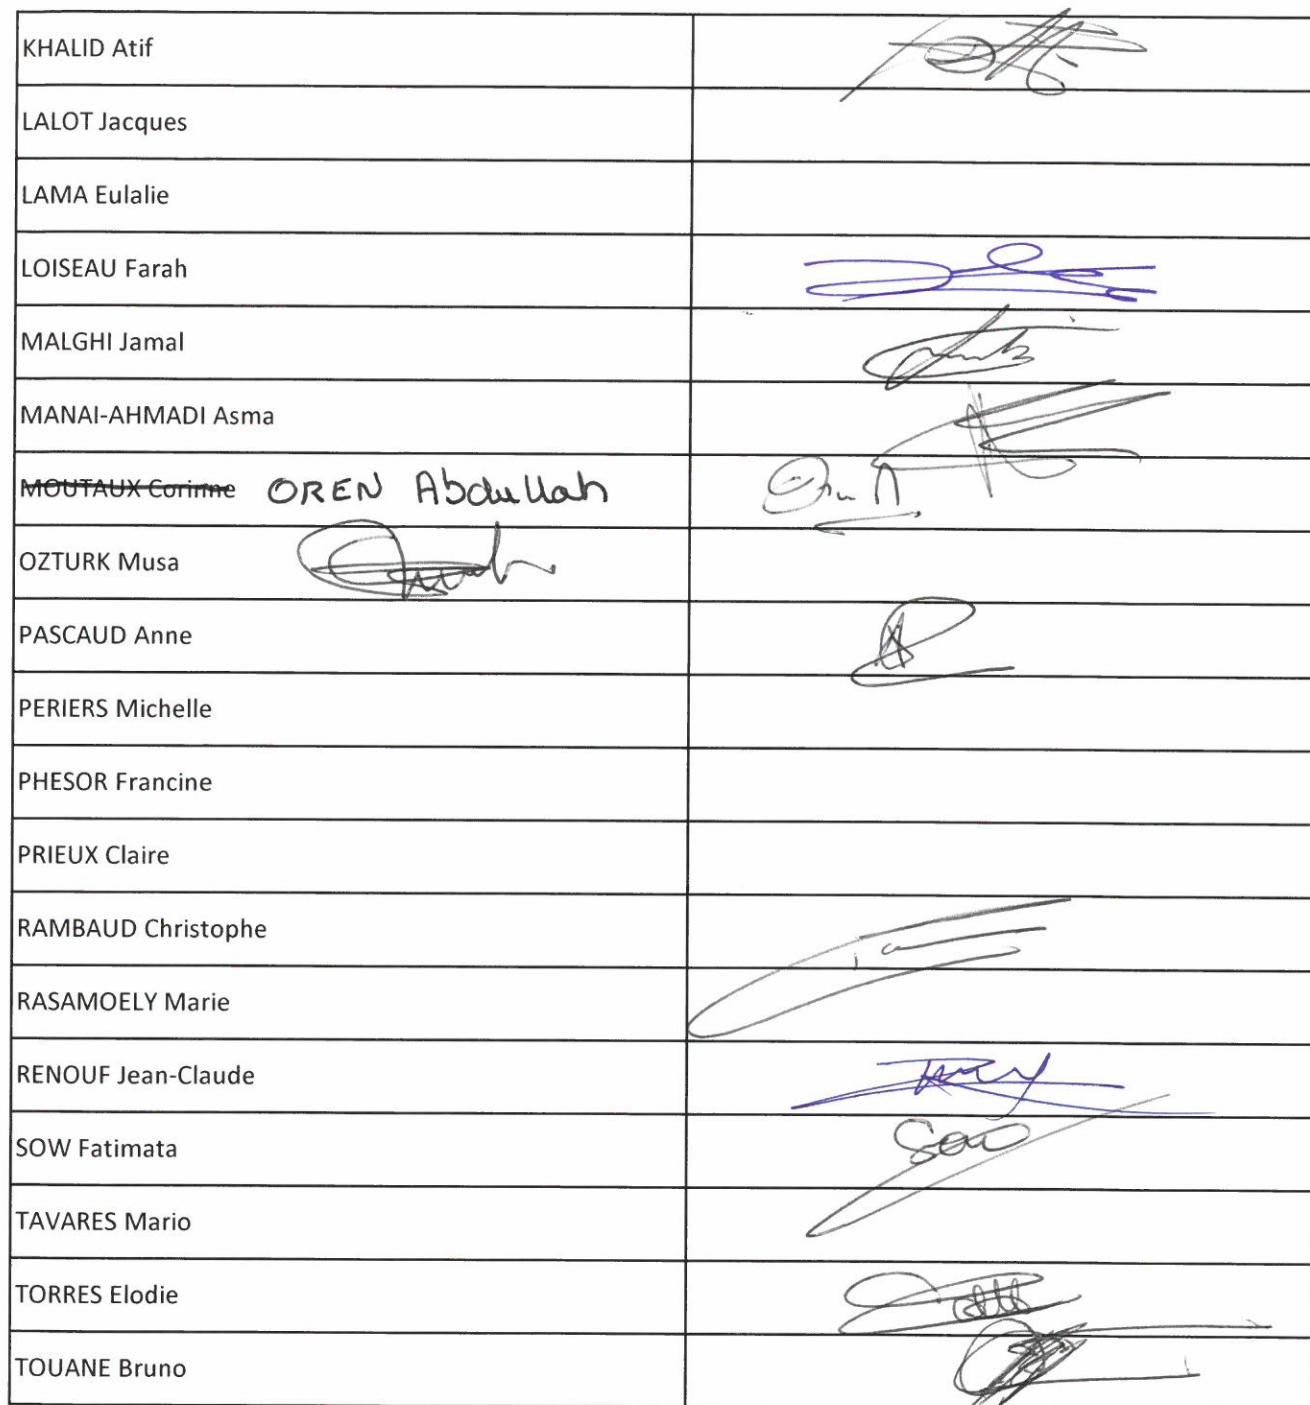 KHALID Atif
LALOT Jacques
LAMA Eulalie
LOISEAU Farah
MALGHI Jamal
MANAI-AHMADI Asma
MOUTAUX Corinne OREN Abdullah
OZTURK Musa
PASCAUD Anne
PERIERS Michelle
PHESOR Francine
PRIEUX Claire
RAMBAUD Christophe
RASAMOELY Marie
RENOUF Jean-Claude
SOW Fatimata Sow
TAVARES Mario
TORRES Elodie
TOUANE Bruno